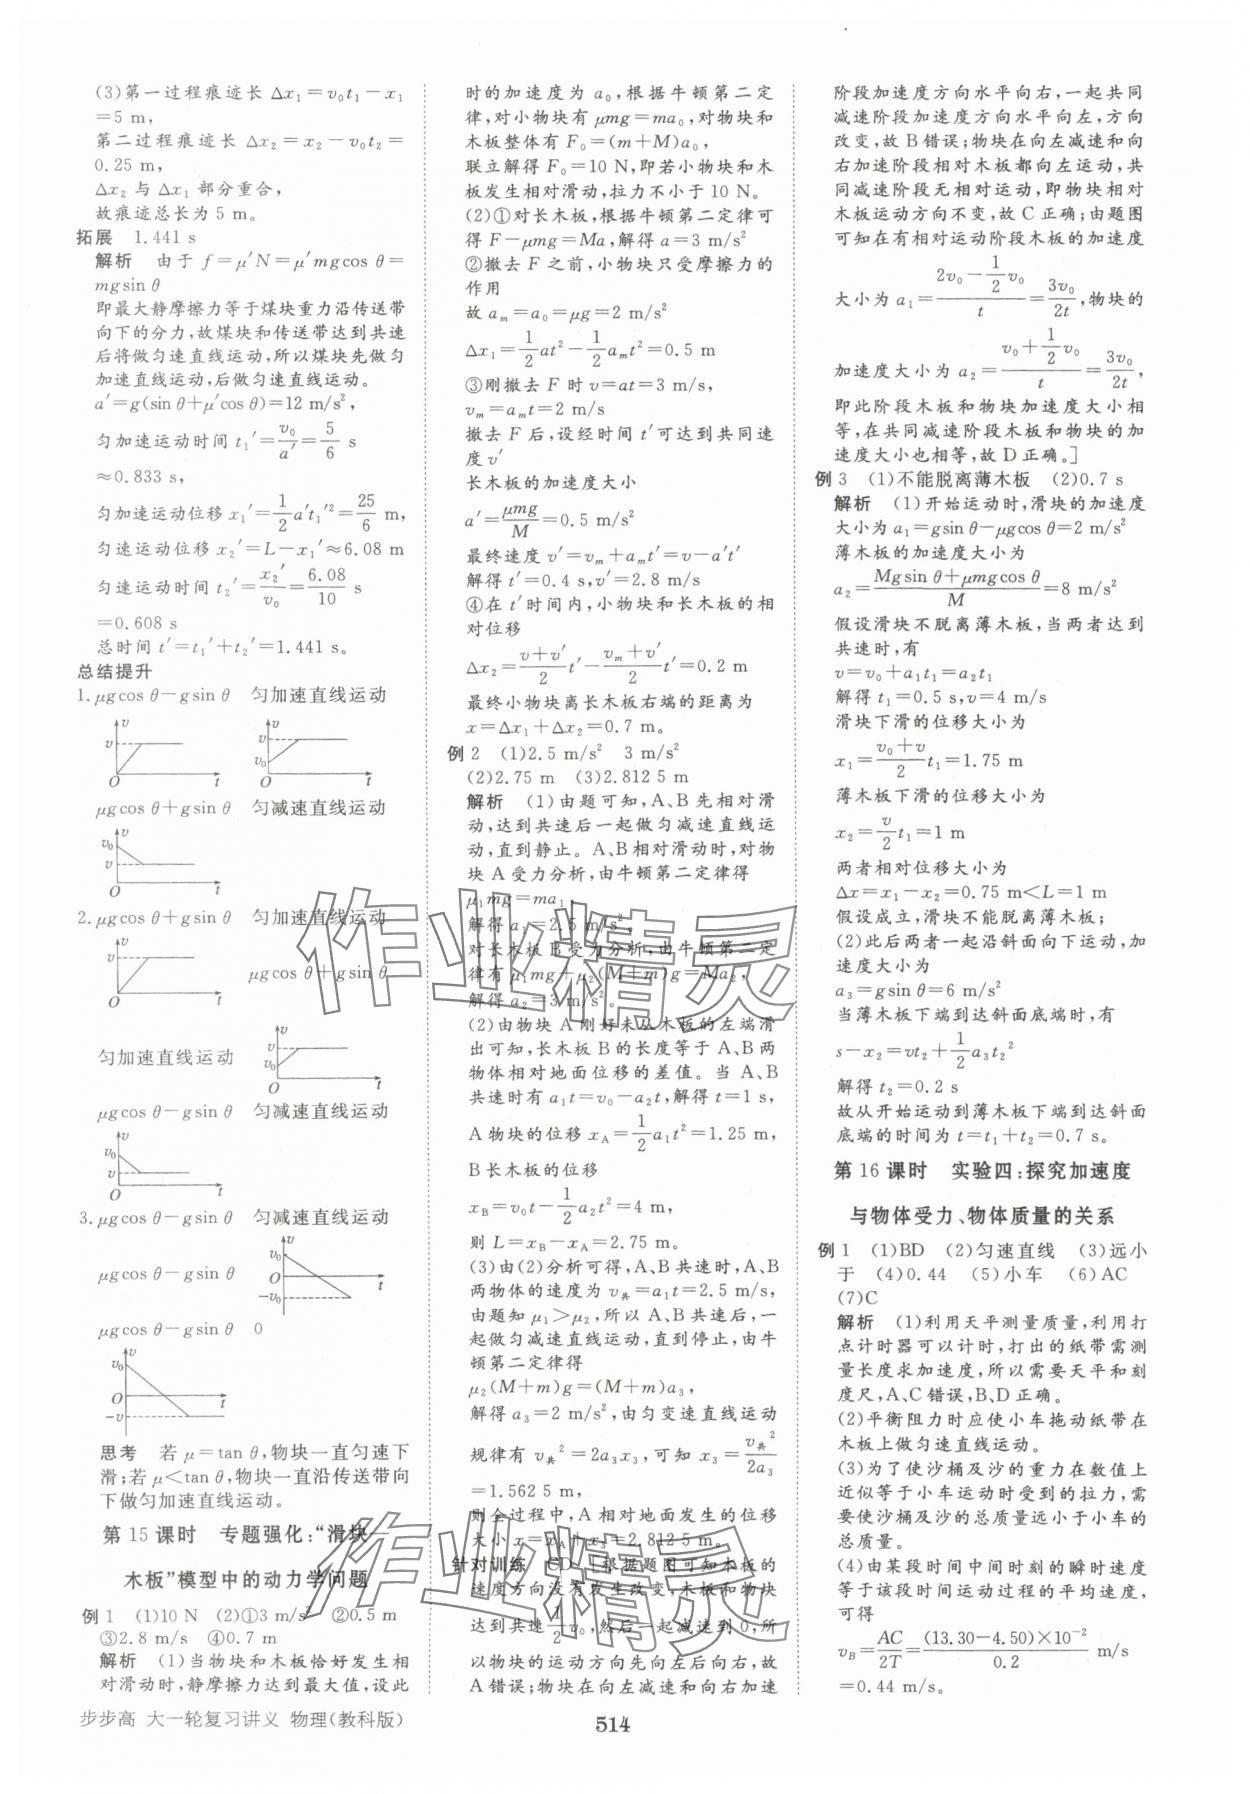 (3)第一过程痕迹长 Δx₁=v₀t₁-x₁
=5 m,
第二过程痕迹长 Δx₂=x₂-v₀t₂=
0.25 m,
Δx₂ 与 Δx₁ 部分重合,
故痕迹总长为 5 m。
拓展 1.441 s
解析 由于 f=μ′N=μ′mgcos θ=
mgsin θ
即最大静摩擦力等于煤块重力沿传送带
向下的分力,故煤块和传送带达到共速
后将做匀速直线运动,所以煤块先做匀
加速直线运动,后做匀速直线运动。
a′=g(sin θ+μ′cos θ)=12 m/s²,
匀加速运动时间 t₁′=v₀/a′=5/6 s
≈0.833 s,
匀加速运动位移 x₁′=1/2 a′t₁′²=25/6 m,
匀速运动位移 x₂′=L-x₁′≈6.08 m
匀速运动时间 t₂′=x₂′/v₀=6.08/10 s
=0.608 s
总时间 t′=t₁′+t₂′=1.441 s。
总结提升
1.μgcos θ-gsin θ 匀加速直线运动
v v O t v v v₀ O t
μgcos θ+gsin θ 匀减速直线运动
v v₀ v O t
2.μgcos θ+gsin θ 匀加速直线运动
v v O t
μgcos θ+gsin θ
匀加速直线运动
v v v₀ O t
μgcos θ-gsin θ 匀减速直线运动
v v₀ v O t
3.μgcos θ-gsin θ 匀减速直线运动
μgcos θ-gsin θ
v v₀ O -v₀ t
μgcos θ-gsin θ 0
v v₀ O -v t
思考 若 μ=tan θ,物块一直匀速下
滑;若 μ<tan θ,物块一直沿传送带向
下做匀加速直线运动。
第 15 课时 专题强化:“滑块—
木板”模型中的动力学问题
例 1 (1)10 N (2)①3 m/s² ②0.5 m
③2.8 m/s ④0.7 m
解析 (1)当物块和木板恰好发生相
对滑动时,静摩擦力达到最大值,设此
时的加速度为 a₀,根据牛顿第二定
律,对小物块有 μmg=ma₀,对物块和
木板整体有 F₀=(m+M)a₀,
联立解得 F₀=10 N,即若小物块和木
板发生相对滑动,拉力不小于 10 N。
(2)①对长木板,根据牛顿第二定律可
得 F-μmg=Ma,解得 a=3 m/s²
②撤去 F 之前,小物块只受摩擦力的
作用
故 aₘ=a₀=μg=2 m/s²
Δx₁=1/2 at²-1/2 aₘt²=0.5 m
③刚撤去 F 时 v=at=3 m/s,
vₘ=aₘt=2 m/s
撤去 F 后,设经时间 t′可达到共同速
度 v′
长木板的加速度大小
a′=μmg/M=0.5 m/s²
最终速度 v′=vₘ+aₘt′=v-a′t′
解得 t′=0.4 s,v′=2.8 m/s
④在 t′时间内,小物块和长木板的相
对位移
Δx₂=(v+v′)/2 t′-(vₘ+v′)/2 t′=0.2 m
最终小物块离长木板右端的距离为
x=Δx₁+Δx₂=0.7 m。
例 2 (1)2.5 m/s² 3 m/s²
(2)2.75 m (3)2.812 5 m
解析 (1)由题可知,A、B 先相对滑
动,达到共速后一起做匀减速直线运
动,直到静止。A、B 相对滑动时,对物
块 A 受力分析,由牛顿第二定律得
μ₁mg=ma₁,
解得 a₁=2.5 m/s²,
对长木板 B 受力分析,由牛顿第二定
律有 μ₁mg+μ₂(M+m)g=Ma₂,
解得 a₂=3 m/s²。
(2)由物块 A 刚好未从木板的左端滑
出可知,长木板 B 的长度等于 A、B 两
物体相对地面位移的差值。当 A、B
共速时有 a₁t=v₀-a₂t,解得 t=1 s,
A 物块的位移 x_A=1/2 a₁t²=1.25 m,
B 长木板的位移
x_B=v₀t-1/2 a₂t²=4 m,
则 L=x_B-x_A=2.75 m。
(3)由(2)分析可得,A、B 共速时,A、B
两物体的速度为 v共=a₁t=2.5 m/s,
由题知 μ₁>μ₂,所以 A、B 共速后,一
起做匀减速直线运动,直到停止,由牛
顿第二定律得
μ₂(M+m)g=(M+m)a₃,
解得 a₃=2 m/s²,由匀变速直线运动
规律有 v共²=2a₃x₃,可知 x₃=v共²/2a₃
=1.562 5 m,
则全过程中,A 相对地面发生的位移
大小 x=x_A+x₃=2.812 5 m。
针对训练 CD [根据题图可知木板的
速度方向没有发生改变,木板和物块
达到共速 1/2 v₀,然后一起减速到 0,所
以物块的运动方向先向左后向右,故
A 错误;物块在向左减速和向右加速
阶段加速度方向水平向右,一起共同
减速阶段加速度方向水平向左,方向
改变,故 B 错误;物块在向左减速和向
右加速阶段相对木板都向左运动,共
同减速阶段无相对运动,即物块相对
木板运动方向不变,故 C 正确;由题图
可知在有相对运动阶段木板的加速度
大小为 a₁=(2v₀-1/2 v₀)/t=3v₀/2t,物块的
加速度大小为 a₂=(v₀+1/2 v₀)/t=3v₀/2t,
即此阶段木板和物块加速度大小相
等,在共同减速阶段木板和物块的加
速度大小也相等,故 D 正确。]
例 3 (1)不能脱离薄木板 (2)0.7 s
解析 (1)开始运动时,滑块的加速度
大小为 a₁=gsin θ-μgcos θ=2 m/s²
薄木板的加速度大小为
a₂=(Mgsin θ+μmgcos θ)/M=8 m/s²
假设滑块不脱离薄木板,当两者达到
共速时,有
v=v₀+a₁t₁=a₂t₁
解得 t₁=0.5 s,v=4 m/s
滑块下滑的位移大小为
x₁=(v₀+v)/2 t₁=1.75 m
薄木板下滑的位移大小为
x₂=v/2 t₁=1 m
两者相对位移大小为
Δx=x₁-x₂=0.75 m<L=1 m
假设成立,滑块不能脱离薄木板;
(2)此后两者一起沿斜面向下运动,加
速度大小为
a₃=gsin θ=6 m/s²
当薄木板下端到达斜面底端时,有
s-x₂=vt₂+1/2 a₃t₂²
解得 t₂=0.2 s
故从开始运动到薄木板下端到达斜面
底端的时间为 t=t₁+t₂=0.7 s。
第 16 课时 实验四:探究加速度
与物体受力、物体质量的关系
例 1 (1)BD (2)匀速直线 (3)远小
于 (4)0.44 (5)小车 (6)AC
(7)C
解析 (1)利用天平测量质量,利用打
点计时器可以计时,打出的纸带需测
量长度求加速度,所以需要天平和刻
度尺,A、C 错误,B、D 正确。
(2)平衡阻力时应使小车拖动纸带在
木板上做匀速直线运动。
(3)为了使沙桶及沙的重力在数值上
近似等于小车运动时受到的拉力,需
要使沙桶及沙的总质量远小于小车的
总质量。
(4)由某段时间中间时刻的瞬时速度
等于该段时间运动过程的平均速度,
可得
v_B=AC/2T=(13.30-4.50)×10⁻²/0.2 m/s
=0.44 m/s。
步步高 大一轮复习讲义 物理(教科版)
514
作业精灵
作业精灵